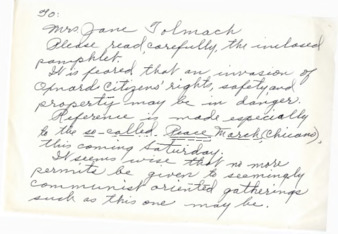 To:
Mrs Jane Tolmach
Please read, carefully, the inclosed
pamphlet.
It is feared that an invasion of
Oxnard Citizens' rights, safety, and
property may be in danger.
Reference is made especially
to the so-called. Peace March, (Chicano),
this coming Saturday.
It seems wise that no more
permits be given to seemingly
communist oriented gatherings
such as this one may be.